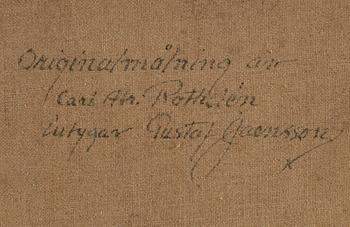 Originalmålning av
Carl Abr. Rothsén
intygar Gustaf Jaensson